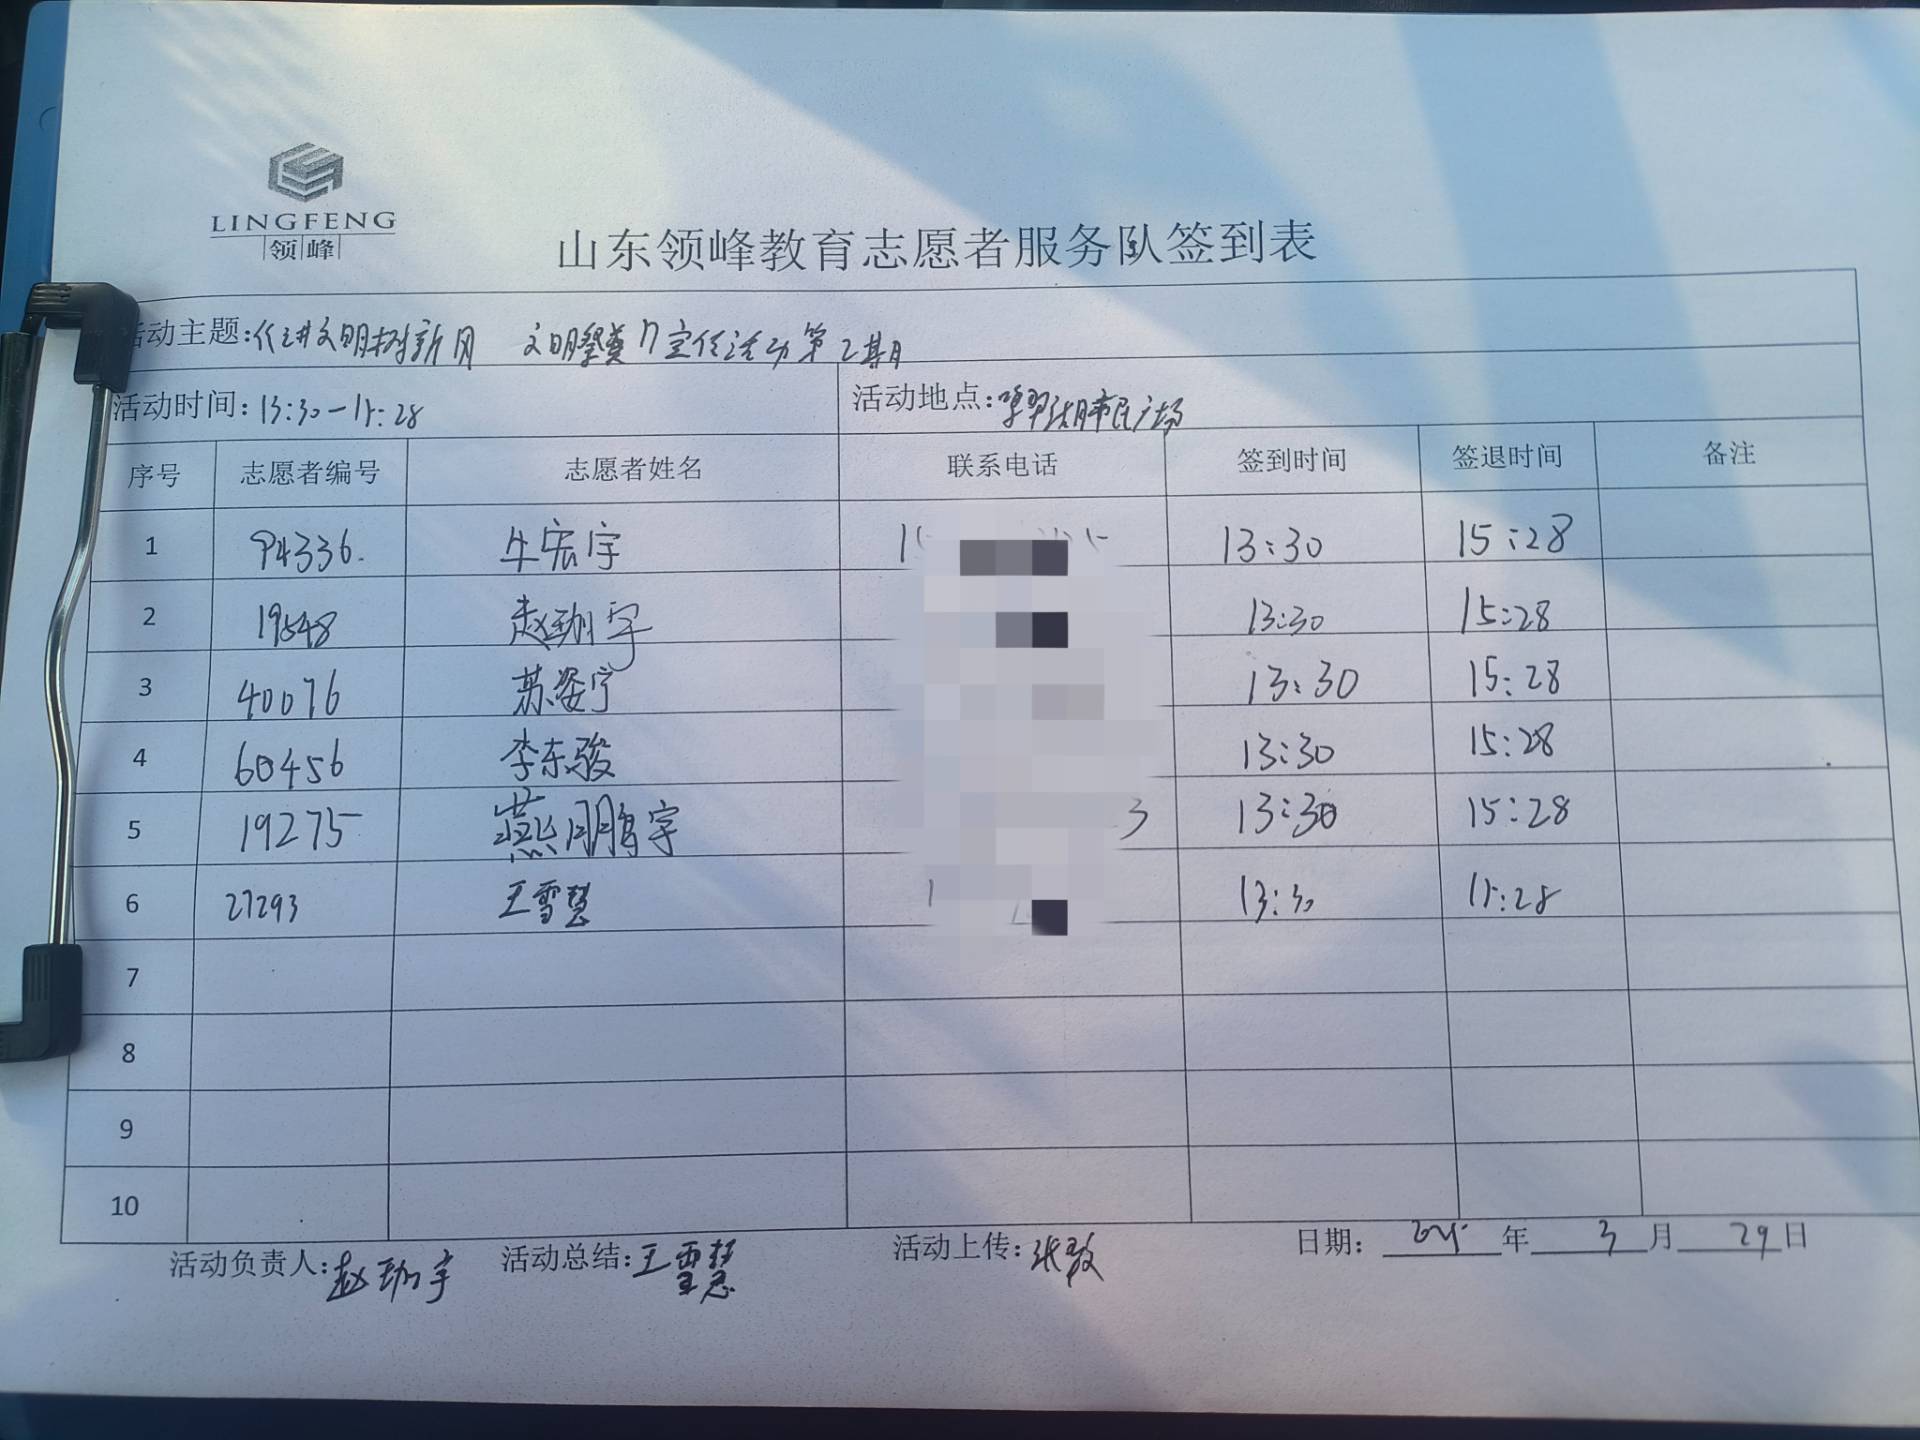 LINGFENG
领峰
山东领峰教育志愿者服务队签到表
活动主题:促进文明树新风 文明祭奠 宣传活动第2期
活动时间:13:30-15:28 活动地点:市民广场
序号 志愿者编号 志愿者姓名 联系电话 签到时间 签退时间 备注
1 94336. 牛宏宇 13:30 15:28
2 19548 赵珈宇 13:30 15:28
3 40076 苏姿宁 13:30 15:28
4 60456 李东骏 13:30 15:28
5 19275 燕鹏宇 3 13:30 15:28
6 27293 王雪慧 1 13:30 15:28
7
8
9
10
活动负责人:赵珈宇 活动总结:王雪慧 活动上传:张敬 日期: 年 3 月 29 日